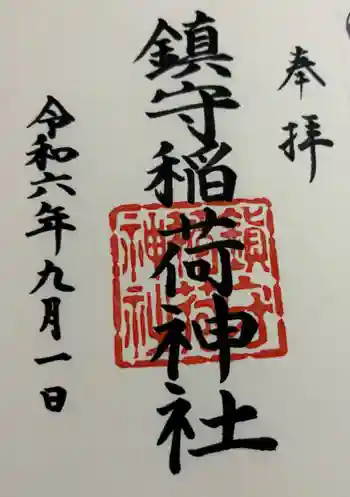 奉拝
鎮守稲荷神社
令和六年九月一日
鎮守
稲荷
神社